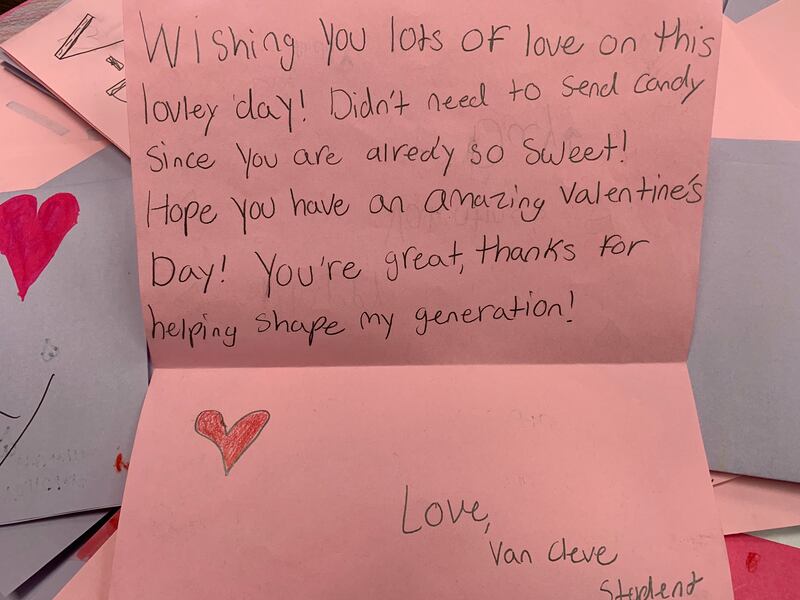 Wishing you lots of love on this
lovley day! Didn't need to send candy
since you are alredy so sweet!
Hope you have an amazing Valentine's
Day! You're great, thanks for
helping shape my generation!
Love,
Van Cleve
Student